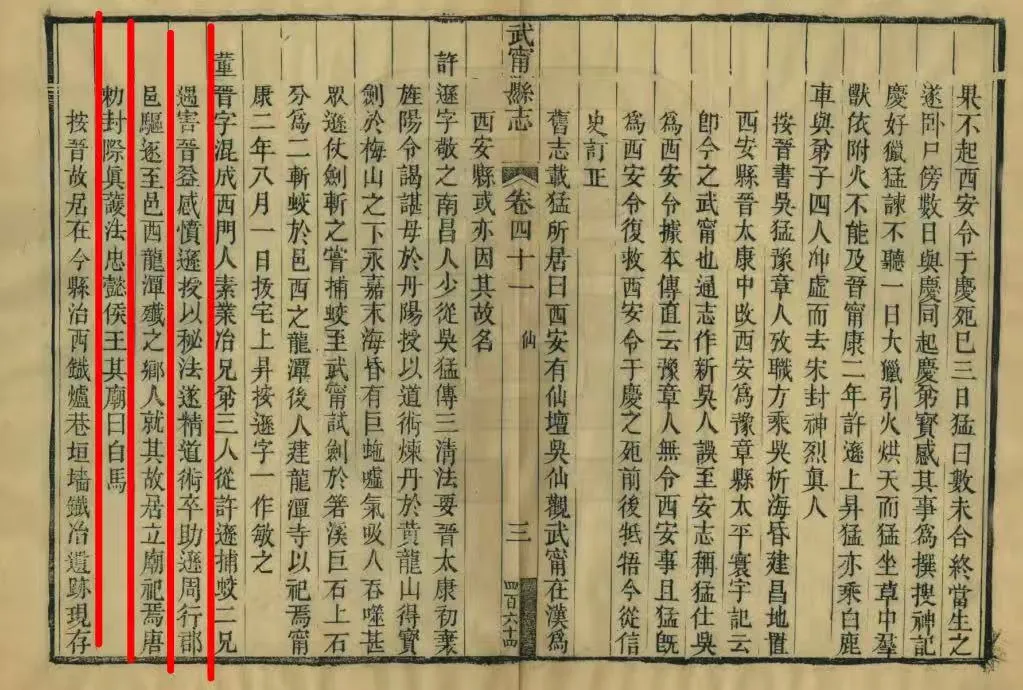 果不起西安令于慶死已三日猛曰數未合終當生之
遂卧尸傍數日與慶同起慶弟寶感其事爲撰搜神記
慶好獵猛諫不聽一日大獵引火烘天而猛坐草中羣
獸依附火不能及晉甯康二年許遜上昇猛亦乘白鹿
車與弟子四人冲虛而去宋封神烈眞人
按晉書吳猛豫章人攷職方乘吳析海昏建昌地置
西安縣晉太康中改西安爲豫章縣太平寰宇記云
卽今之武甯也通志作新吳人誤至安志稱猛仕吳
爲西安令據本傳直云豫章人無令西安事且猛旣
爲西安令復救西安令于慶之死前後牴牾今從信
史訂正
舊志載猛所居曰西安有仙壇吳仙觀武甯在漢爲
武甯縣志
卷四十一
仙
三
四百六十四
西安縣或亦因其故名
許遜字敬之南昌人少從吳猛傳三清法要晉太康初棄
旌陽令謁諶母於丹陽授以道術煉丹於黃龍山得寶
劍於梅山之下永嘉末海昏有巨蛇噓氣吸人吞噬甚
眾遜仗劍斬之嘗捕蛟至武甯試劍於箬溪巨石上石
分爲二斬蛟於邑西之龍潭後人建龍潭寺以祀焉甯
康二年八月一日拔宅上昇按遜字一作敏之
董晉字混成西門人素業冶兄弟三人從許遜捕蛟二兄
遇害晉益感憤遜授以秘法遂精道術卒助遜周行郡
邑驅逐至邑西龍潭殲之鄉人就其故居立廟祀焉唐
勅封際眞護法忠懿侯王其廟曰白馬
按晉故居在今縣治西鐵爐巷垣墻鐵冶遺跡現存